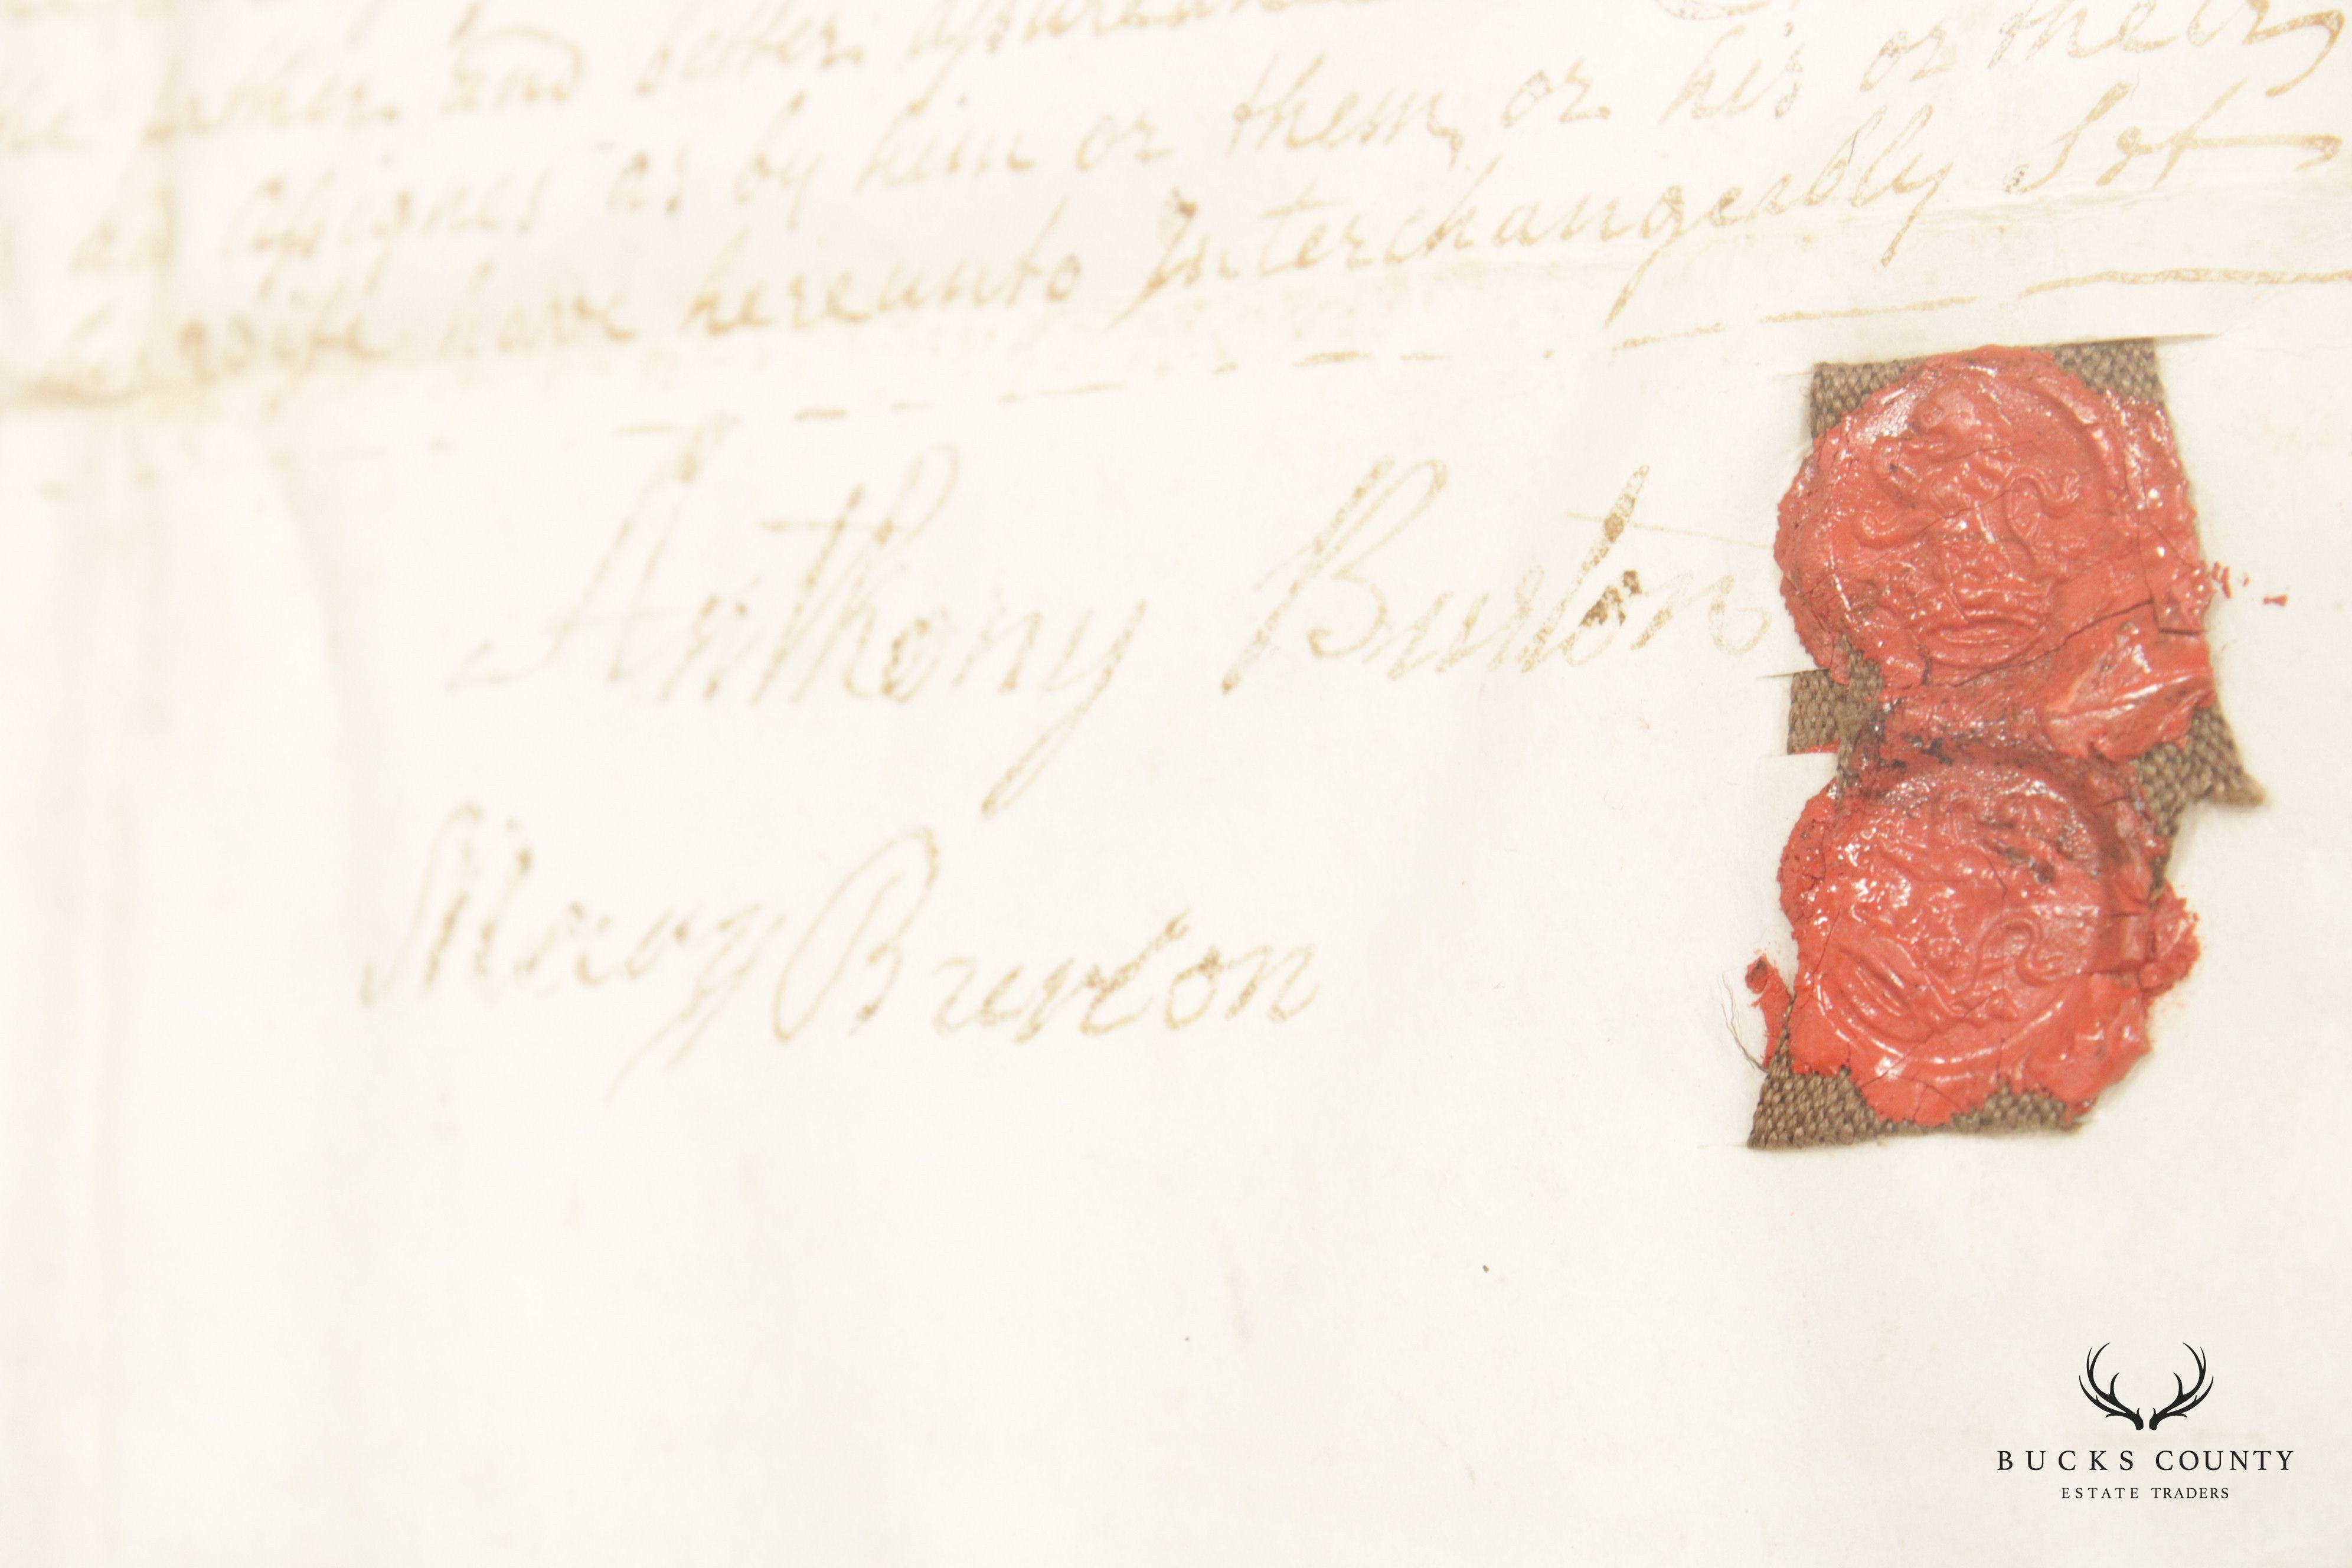 and better
as by him or them, or his or their
wife have hereunto Interchangeably Set
Anthony Burton
Mary Burton
BUCKS COUNTY
ESTATE TRADERS